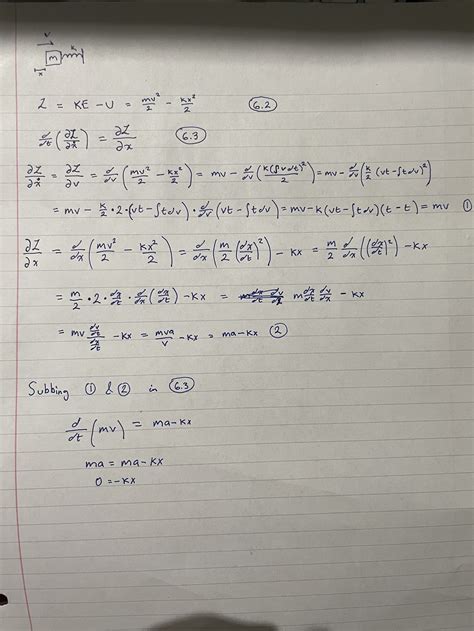 v
m k
x
L = KE - U = mv²/2 - kx²/2 (6.2)
d/dt (∂L/∂ẋ) = ∂L/∂x (6.3)
∂L/∂ẋ = ∂L/∂v = d/dv (mv²/2 - kx²/2) = mv - d/dv (k(∫vdt)²/2) = mv - d/dv (k/2 (vt - ∫tdv)²)
= mv - k/2 · 2 · (vt - ∫tdv) · d/dv (vt - ∫tdv) = mv - k(vt - ∫tdv)(t - t) = mv ①
∂L/∂x = d/dx (mv²/2 - kx²/2) = d/dx (m/2 (dx/dt)²) - kx = m/2 d/dx ((dx/dt)²) - kx
= m/2 · 2 · dx/dt · d/dx (dx/dt) - kx = m dx/dt dv/dx - kx
= mv (dv/dt)/(dx/dt) - kx = mva/v - kx = ma - kx ②
Subbing ① & ② in (6.3)
d/dt (mv) = ma - kx
ma = ma - kx
0 = -kx